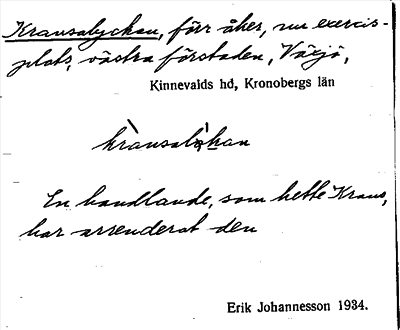 Kransalyckan, förr åker, nu exercis-
plats, västra förstaden, Växjö,
Kinnevalds hd, Kronobergs län
krànsalỳkan
En handlande, som hette Krans,
har arrenderat den
Erik Johannesson 1934.